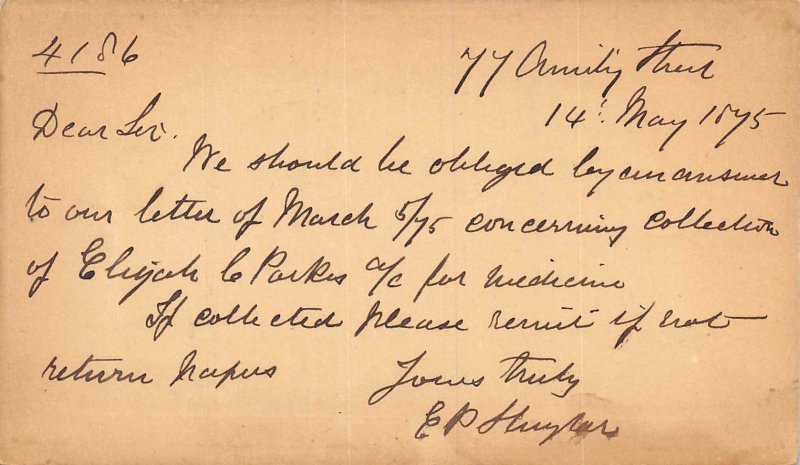 4186
77 Amity Street
14' May 1875
Dear Sir.
We should be obliged by an answer
to our letter of March 5/75 concerning collection
of Elijah C Parkes a/c for medicine
If collected please remit if not
return papers
Yours truly
E P